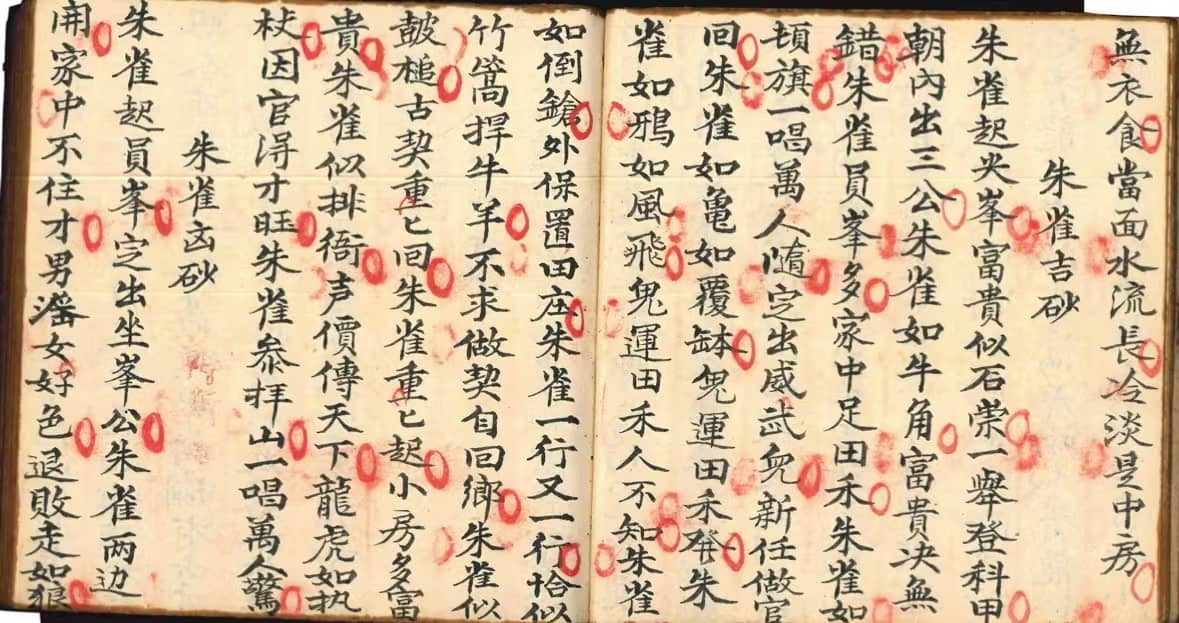 無衣食當面水流長冷淡是中房
朱雀吉砂
朱雀起尖峯富貴似石崇一舉登科甲
朝內出三公朱雀如牛角富貴决無
錯朱雀員峯多家中足田禾朱雀如
頓旗一唱萬人隨定出威武兒新任做官
回朱雀如亀如覆缽鬼運田禾發朱
雀如鴉如風飛鬼運田禾人不知朱雀
如倒鎗外保置田庄朱雀一行又一行恰似
竹篙捍牛羊不求做契自回鄉朱雀似
皷槌古契重匕回朱雀重匕起小房多富
貴朱雀似排衙声價傳天下龍虎如执
杖因官淂才旺朱雀叅拜山一唱萬人驚
朱雀凶砂
朱雀起員峯定出坐峯公朱雀两边
開家中不住才男滛女好色退敗走如狼